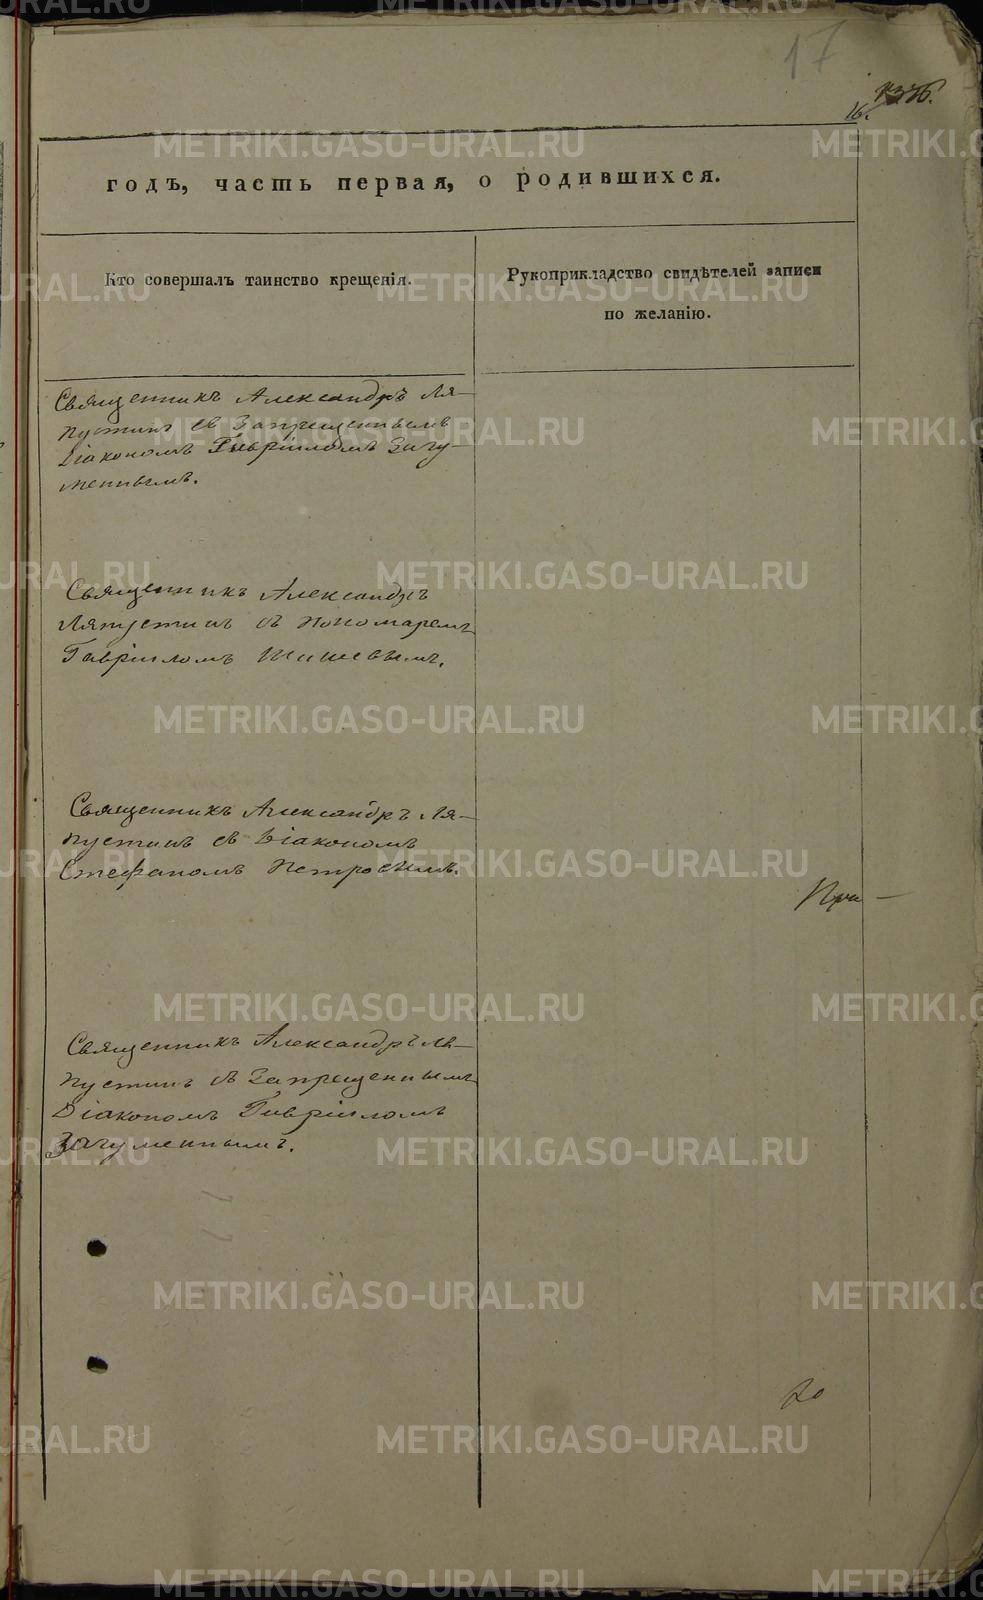 17
16.
годъ, часть первая, о родившихся.
Кто совершалъ таинство крещенія.
Рукоприкладство свидѣтелей записи
по желанію.
Священникъ Александръ Ля-
пустинъ съ Запрещеннымъ
Діакономъ Гавріиломъ Загу-
меннымъ.
Священникъ Александръ
Ляпустинъ съ Пономаремъ
Гавріиломъ Шишевымъ.
Священникъ Александръ Ля-
пустинъ съ Діакономъ
Стефаномъ Петровымъ.
При-
Священникъ Александръ Ля-
пустинъ съ Запрещеннымъ
Діакономъ Гавріиломъ
Загуменнымъ.
METRIKI.GASO-URAL.RU